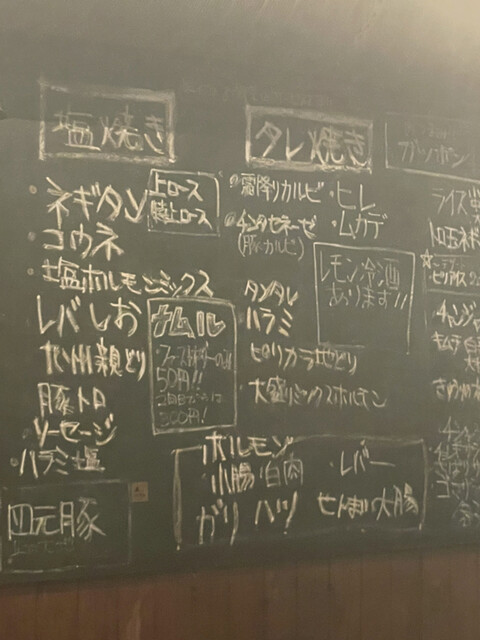 塩焼き
・ネギタン
・コウネ
・塩ホルモンミックス
レバしお
九州親どり
豚トロ
・ソーセージ
・ハラミ塩
四元豚
上ロース
特上ロース
ナムル
ファーストオーダーのみ
50円!!
2回目からは
300円!
タレ焼き
・霜降りカルビ
・ヒレ
・ムカデ
(豚カルビ)
レモン冷酒
あります!!
タンタレ
ハラミ
ピリカラ地どり
大盛りミックスホルモン
ホルモン
小腸・白肉・レバー
ガリ ハツ せんまい 大腸
ライス
チャンジャ
キムチ